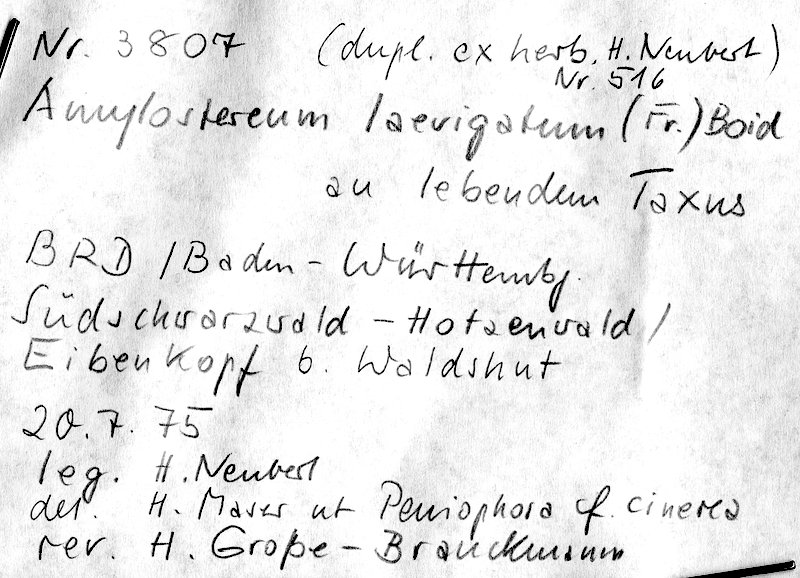 Nr. 3807 (dupl. ex herb. H. Neubert)
Nr. 516
Amylostereum laevigatum (Fr.) Boid
an lebendem Taxus
BRD / Baden - Württembg.
Südschwarzwald - Hotzenwald /
Eibenkopf b. Waldshut
20. 7. 75
leg. H. Neubert
det. H. Mayer ut Peniophora cf. cinerea
rev. H. Große - Brauckmann